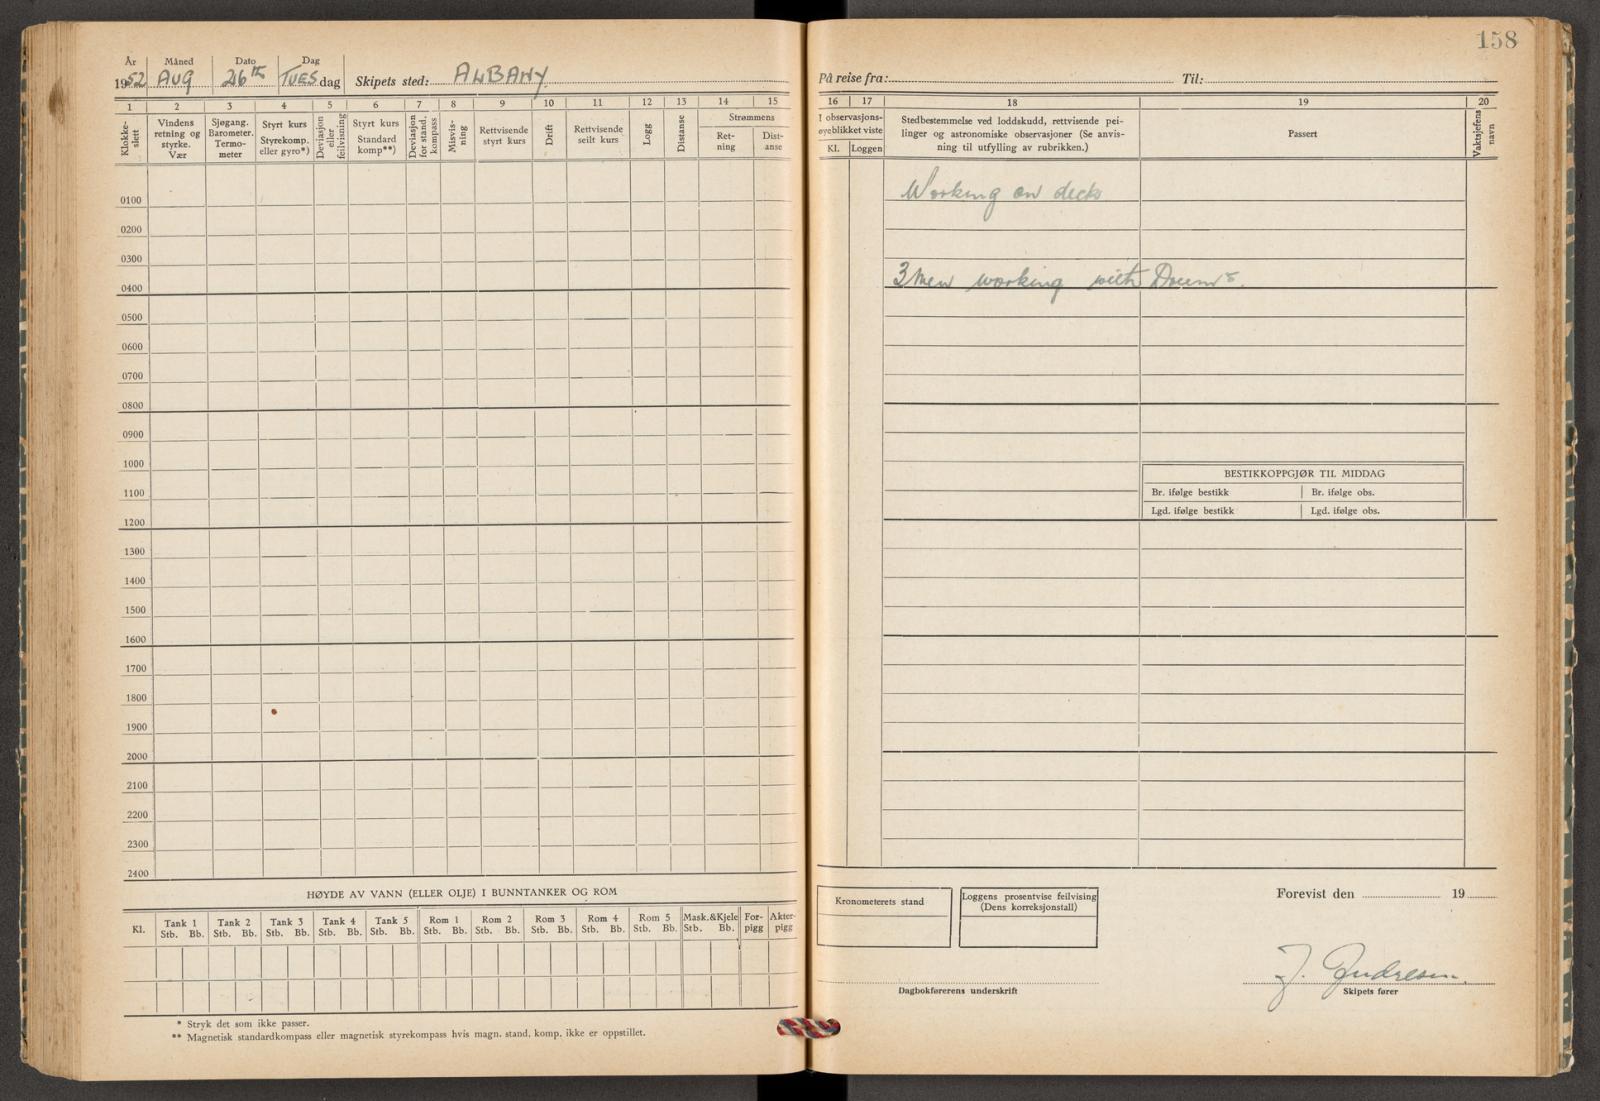 158
År Måned Dato Dag
1952 AUG 26th TUES dag Skipets sted: ALBANY
På reise fra: Til:
1 2 3 4 5 6 7 8 9 10 11 12 13 14 15
Klokke-slett
Vindens retning og styrke. Vær
Sjøgang. Barometer. Termo-meter
Styrt kurs Styrekomp. eller gyro*)
Deviasjon eller feilvisning
Styrt kurs Standard komp**)
Deviasjon for stand. kompass
Misvis-ning
Rettvisende styrt kurs
Drift
Rettvisende seilt kurs
Logg
Distanse
Strømmens
Ret-ning
Dist-anse
16 17 18 19 20
I observasjons-øyeblikket viste
Kl. Loggen
Stedbestemmelse ved loddskudd, rettvisende pei-
linger og astronomiske observasjoner (Se anvis-
ning til utfylling av rubrikken.)
Passert
Vaktsjefens navn
Working on deck
3 Men working with Drums.
0100
0200
0300
0400
0500
0600
0700
0800
0900
1000
1100
1200
1300
1400
1500
1600
1700
1800
1900
2000
2100
2200
2300
2400
BESTIKKOPPGJØR TIL MIDDAG
Br. ifølge bestikk Br. ifølge obs.
Lgd. ifølge bestikk Lgd. ifølge obs.
HØYDE AV VANN (ELLER OLJE) I BUNNTANKER OG ROM
Kl. Tank 1 Tank 2 Tank 3 Tank 4 Tank 5 Rom 1 Rom 2 Rom 3 Rom 4 Rom 5 Mask.&Kjele For-pigg Akter-pigg
Stb. Bb. Stb. Bb. Stb. Bb. Stb. Bb. Stb. Bb. Stb. Bb. Stb. Bb. Stb. Bb. Stb. Bb. Stb. Bb. Stb. Bb.
* Stryk det som ikke passer.
** Magnetisk standardkompass eller magnetisk styrekompass hvis magn. stand. komp. ikke er oppstillet.
Kronometerets stand
Loggens prosentvise feilvising
(Dens korreksjonstall)
Forevist den 19
Dagbokførerens underskrift
J. Gudresen
Skipets fører